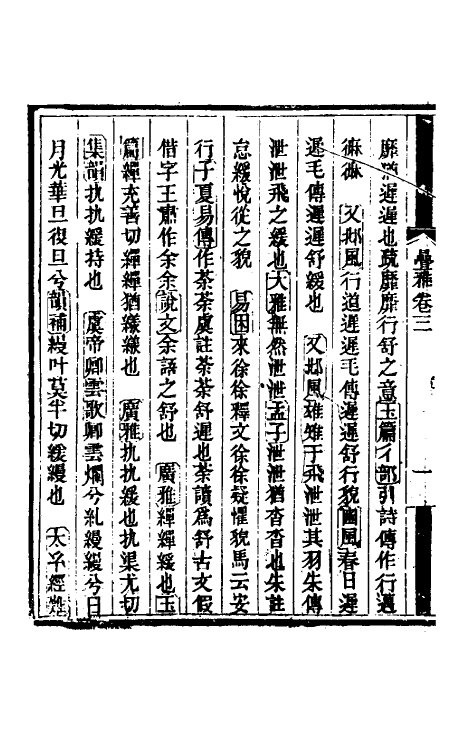 疊雅卷三
靡猶遲遲也疏靡靡行舒之意玉篇彳部引詩傳作行邁
𢕟𢕟　又邶風行道遲遲毛傳遲遲舒行貌豳風春日遲
遲毛傳遲遲舒緩也　又邶風雄雉于飛泄泄其羽朱傳
泄泄飛之緩也大雅無然泄泄孟子泄泄猶沓沓也朱註
怠緩悅從之貌　易困來徐徐釋文徐徐疑懼貌馬云安
行子夏易傳作荼荼虞註荼荼舒遲也荼讀為舒古文假
借字王肅作余余說文余語之舒也　廣雅繟繟緩也玉
篇繟充善切繟繟猶緩緩也　廣雅扏扏緩也扏渠尤切
集韻扏扏緩持也　虞帝卿雲歌卿雲爛兮糺縵縵兮日
月光華旦復旦兮韻補縵叶莫半切緩縵也　太平經難